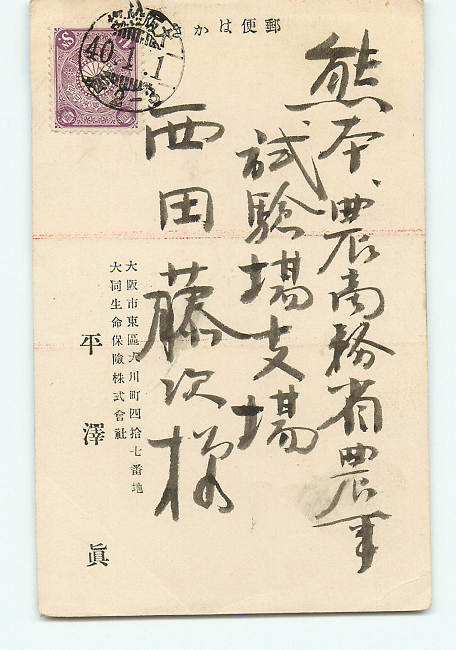 郵便はかき
熊本農商務省農事
試驗場支場
西田藤次様
大阪市東區大川町四拾七番地
大同生命保險株式會社
平澤眞
40.1.1